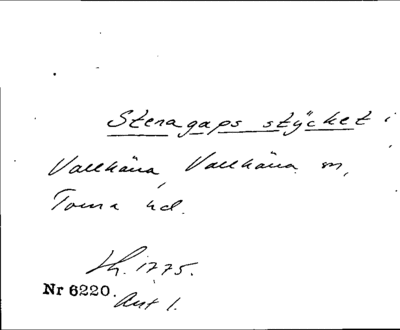 Stenagaps stÿcket i
Vallkärra, Vallkärra sn,
Torna hd.
Sk. 1775.
Nr 6220.
Akt 1.